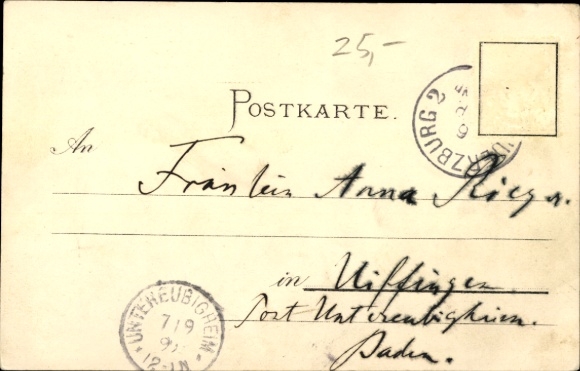 25,-
POSTKARTE.
WÜRZBURG 2
An
Fräulein Anna Rieger.
in Uiffingen
Post Untereubigheim.
Baden.
UNTEREUBIGHEIM
7/9
12-1N